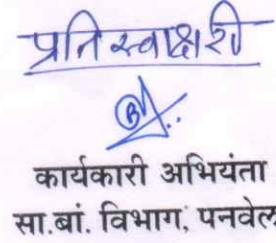 प्रतिस्वाक्षरी
कार्यकारी अभियंता
सा.बां. विभाग, पनवेल